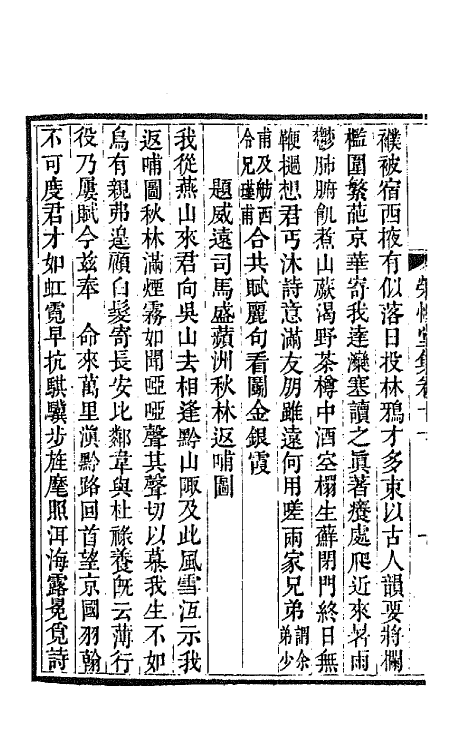 襆被宿西掖有似落日投林鴉才多束以古人韻要將欄
檻圍繁葩京華寄我達灤塞讀之眞著癢處爬近來暑雨
鬱肺腑飢煮山蕨渴野茶樽中酒空榻生蘚閉門終日無
鞭撾想君丐沐詩意滿友朋雖遠何用嗟兩家兄弟謂余弟少
甫及舫西令兄瑾甫合共賦麗句看圖金銀霞
題威遠司馬盛蘋洲秋林返哺圖
我從燕山來君向吳山去相逢黔山陬及此風雪沍示我
返哺圖秋林滿煙霧如聞啞啞聲其聲切以慕我生不如
烏有親弗遑顧白髮寄長安比鄰韋與杜祿養旣云薄行
役乃屢賦今茲奉 命來萬里滇黔路回首望京國羽翰
不可度君才如虹霓早抗騏驥步旌麾照洱海露冕覓詩
集卷十